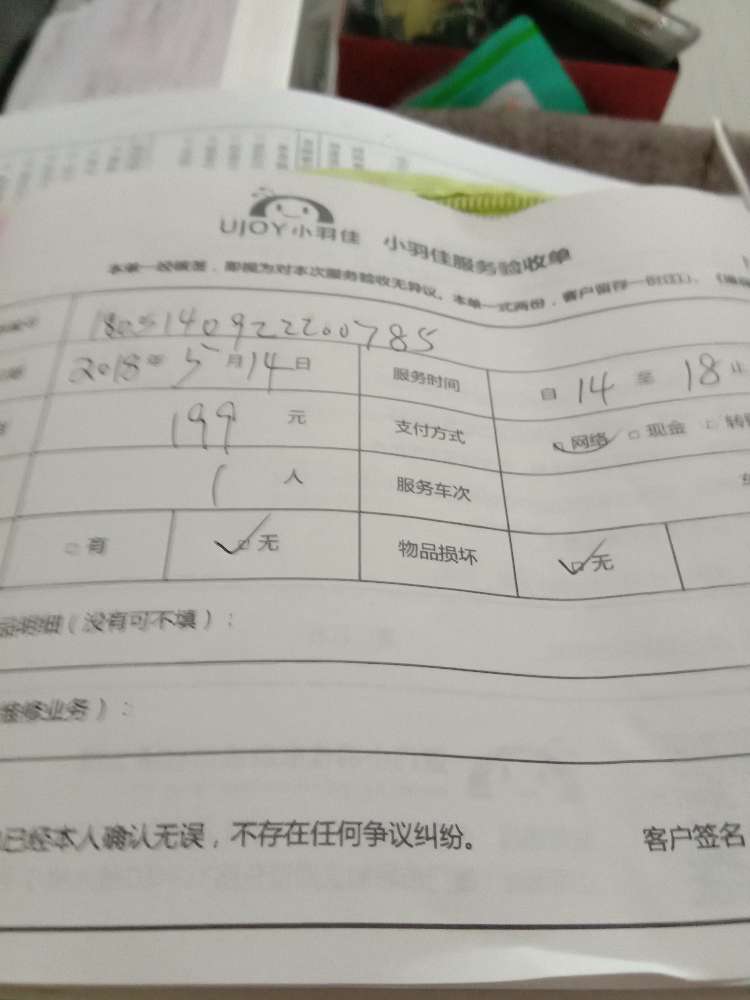 UJOY小羽佳 小羽佳服务验收单
本单一经被签，即视为对本次服务验收无异议。本单一式两份，客户留存一份
1805140922200785
2018年5月14日 服务时间 自14至18止
199元 支付方式 网络 现金 转
1人 服务车次
有 无 物品损坏 无
品明细（没有可不填）：
维修业务）：
已经本人确认无误，不存在任何争议纠纷。 客户签名